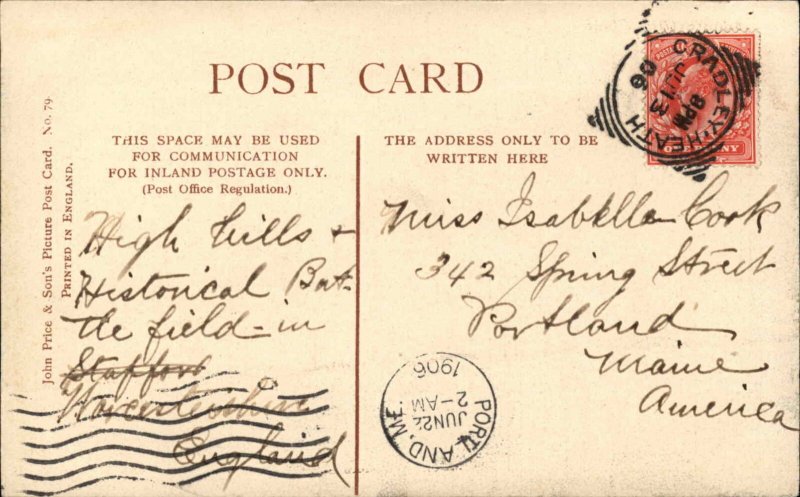 POST CARD
John Price & Son's Picture Post Card. No. 79.
PRINTED IN ENGLAND.
THIS SPACE MAY BE USED
FOR COMMUNICATION
FOR INLAND POSTAGE ONLY.
(Post Office Regulation.)
High hills &
Historical Bat-
tle field - in
Stafford
Worcestershire
England
THE ADDRESS ONLY TO BE
WRITTEN HERE
Miss Isabella Cook
342 Spring Street
Portland
Maine
America
CRADLEY-HEATH
8 PM
13
06
PORTLAND, ME.
JUN 22
2-AM
1906